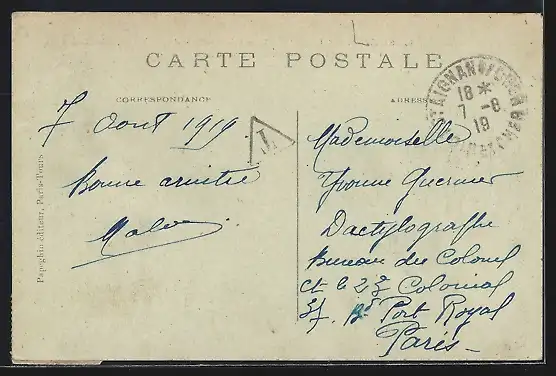 CARTE POSTALE
CORRESPONDANCE
ADRESSE
Papeghin éditeur, Paris-Tours
7 Aout 1919
Bonne amitié
T
18 *
7 - 8
19
Mademoiselle
Yvonne Guernier
Dactylographe
Bureau du Colonel
Ct le 23e Colonial
37. Bd Port Royal
Paris